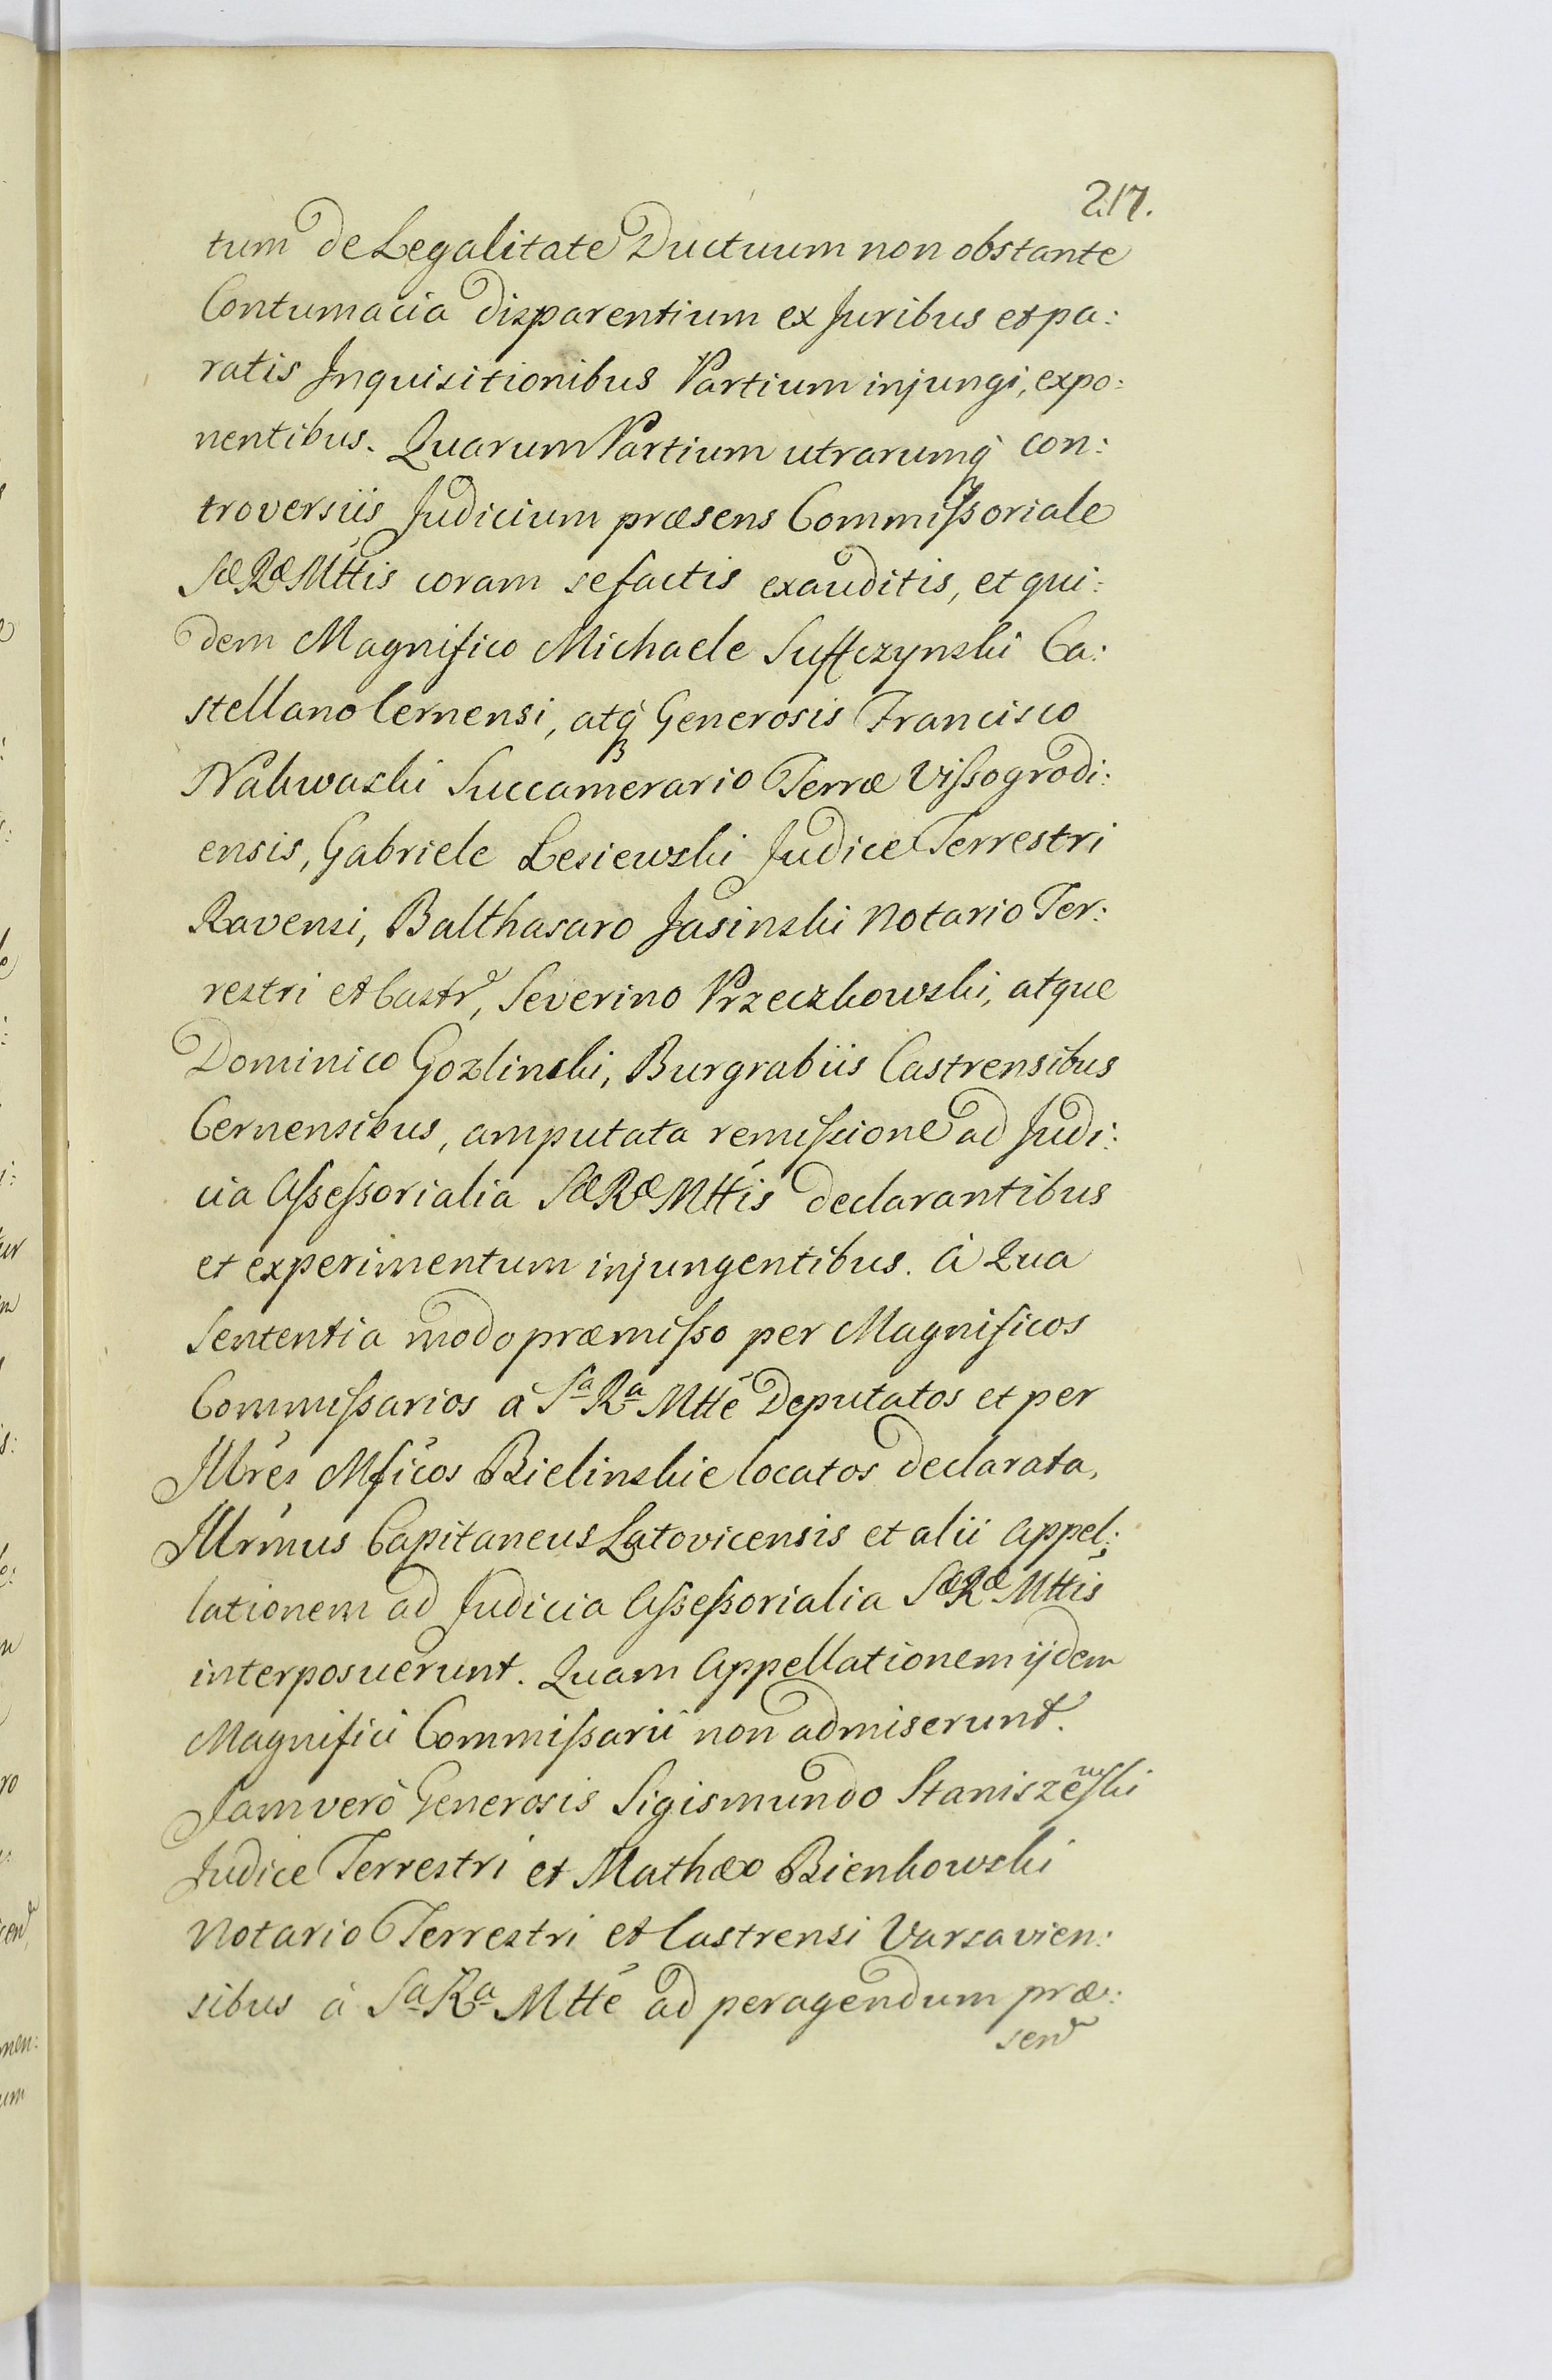 217.
tum de Legalitate Ductuum non obstante
Contumacia disparentium ex Juribus et pa:
ratis Inquisitionibus Partium injungi, expo:
nentibus. Quarum Partium utrarumq́ con:
troversiis Judicium præsens Commißoriale
Sæ Ræ Mttis coram se factis exauditis, et qui:
dem Magnifico Michaele Suffczynski Ca:
stellano Cernensi, atq́ Generosis Francisco
Nakwaski Succamerario Terræ Vißogrodi:
ensis, Gabriele Lesiewski Judice Terrestri
Ravensi, Balthasaro Jasinski Notario Ter:
restri et Castr, Severino Przeczkowski, atque
Dominico Gozlinski, Burgrabiis Castrensibus
Cernensibus, amputata remißione ad Judi:
cia Aßeßorialia Sæ Ræ Mttis declarantibus
et experimentum injungentibus. à Qua
Sententia modo præmißo per Magnificos
Commißarios à Sa Ra Mtte Deputatos et per
Illres Mficos Bielinskie locatos declarata,
Illrmus Capitaneus Latovicensis et alii Appel:
lationem ad Judicia Aßeßorialia Sæ Ræ Mttis
interposuerunt. Quam Appellationem ijdem
Magnifici Commißarii non admiserunt.
Jam verò Generosis Sigismundo Staniszewski
Judice Terrestri et Mathæo Bienkowski
Notario Terrestri et Castrensi Varsavien:
sibus à Sa Ra Mtte ad peragendum præ: